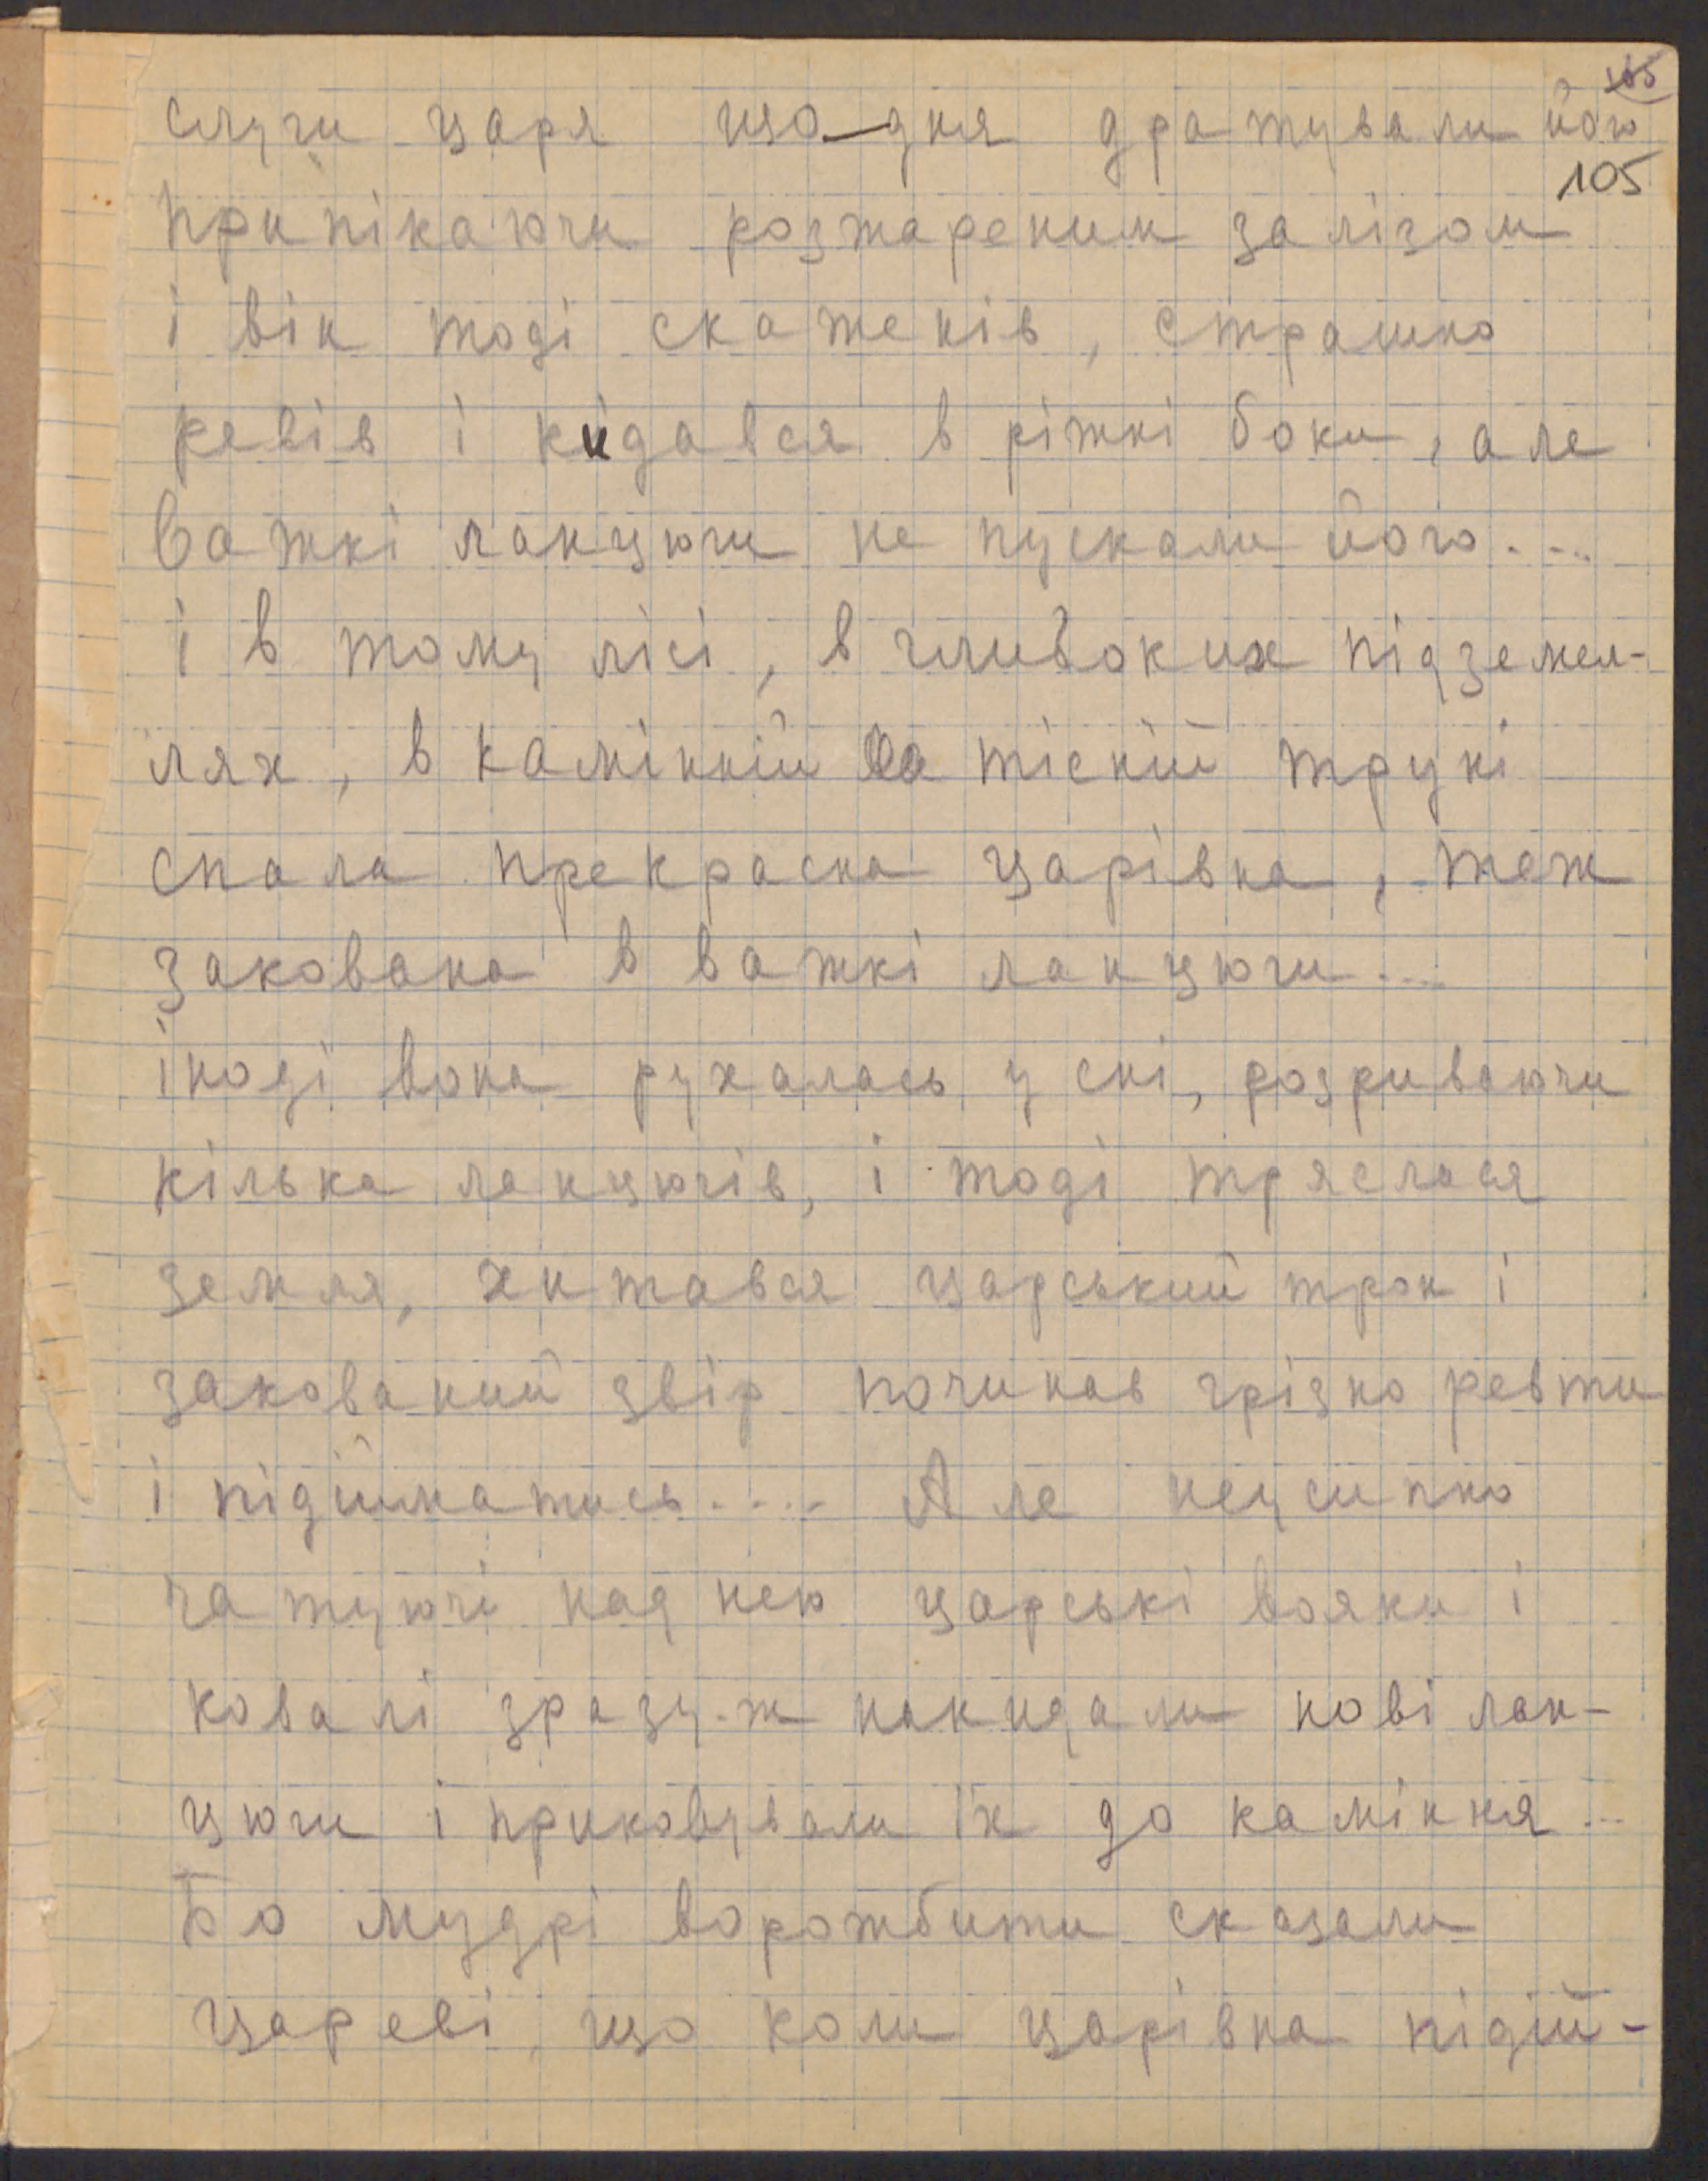 105
слуги царя що-дня дратували його
105
припікаючи розжареним залізом
і він тоді скаженів, страшно
ревів і кидався в ріжні боки, але
важкі ланцюги не пускали його....
і в тому лісі, в глибоких підземел-
лях, в камінній та тісній труні
спала прекрасна царівна, теж
закована в важкі ланцюги...
іноді вона рухалась у сні, розриваючи
кілька ланцюгів, і тоді тряслася
земля, хитався царський трон і
закований звір починав грізно ревти
і підійматись.... Але неусипно
чатуючі над нею царські вояки і
ковалі зразу-ж накидали нові лан-
цюги і приковували їх до каміння...
Бо мудрі ворожбити сказали
цареві, що коли царівна підій-